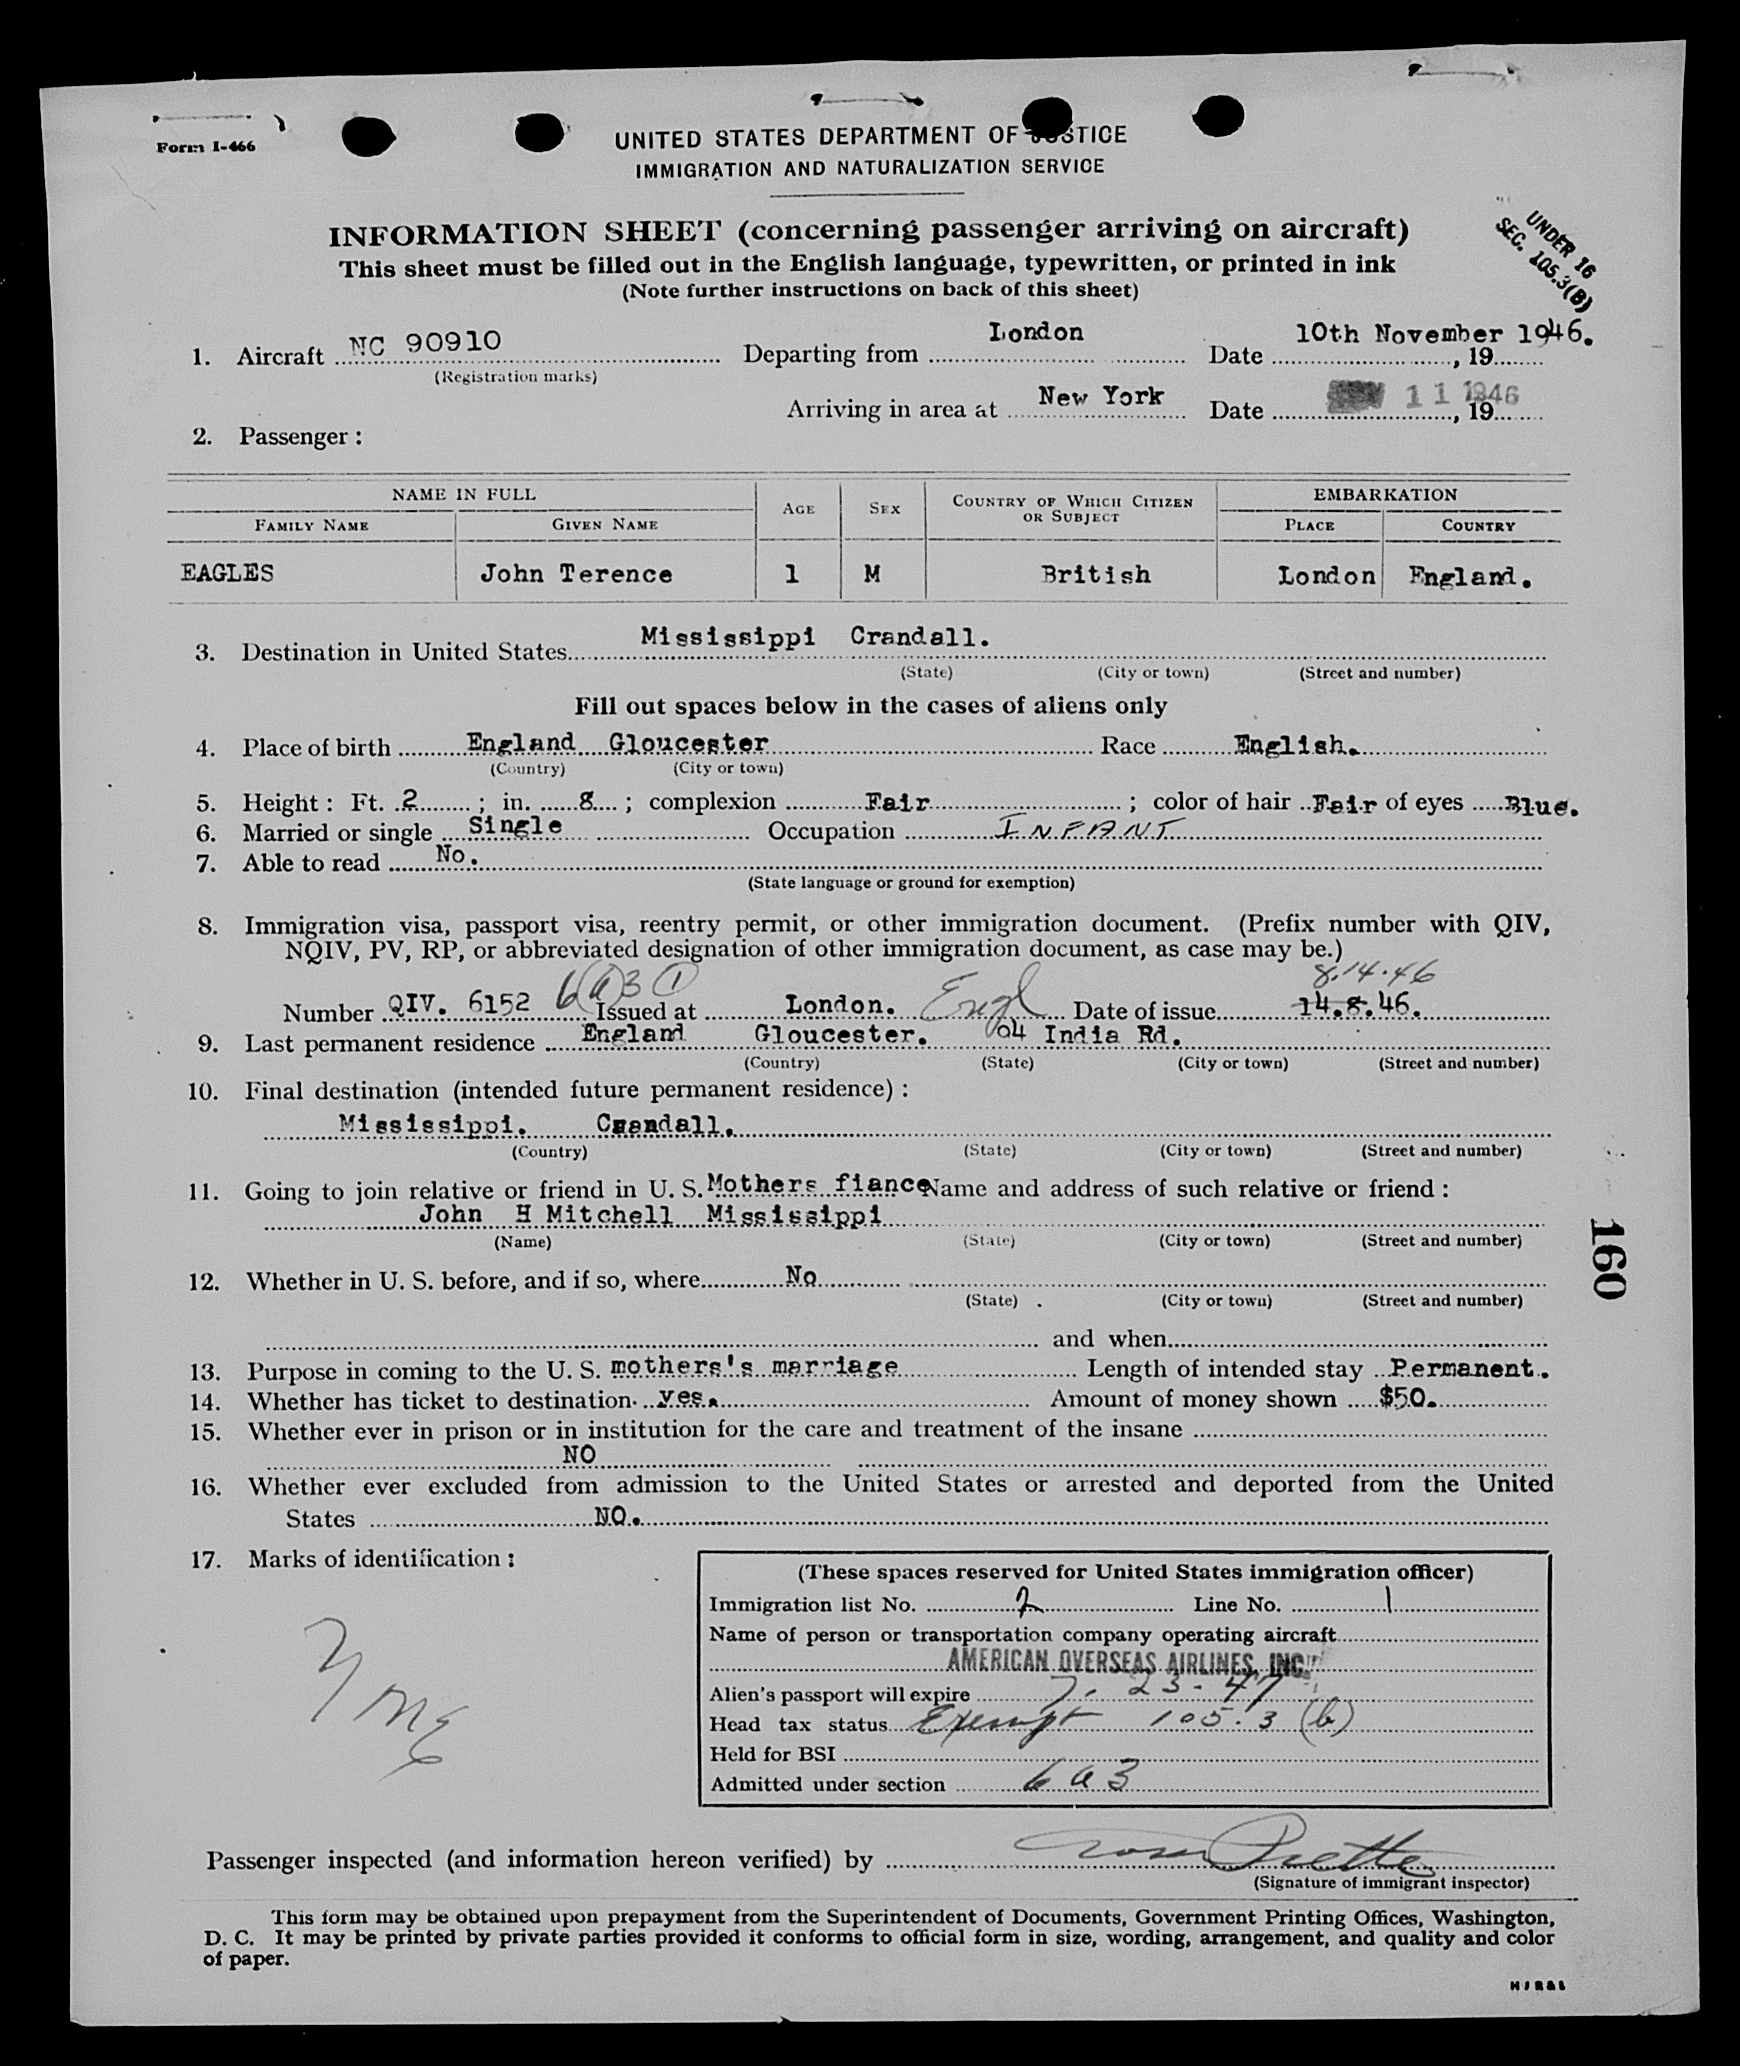 Form I-466
UNITED STATES DEPARTMENT OF JUSTICE
IMMIGRATION AND NATURALIZATION SERVICE
INFORMATION SHEET (concerning passenger arriving on aircraft)
This sheet must be filled out in the English language, typewritten, or printed in ink
(Note further instructions on back of this sheet)
UNDER 16
SEC. 105.3(B)
1. Aircraft NC 90910 Departing from London Date 10th November 1946. , 19
(Registration marks)
Arriving in area at New York Date 11 1946 , 19
2. Passenger :
NAME IN FULL AGE SEX COUNTRY OF WHICH CITIZEN OR SUBJECT EMBARKATION
FAMILY NAME GIVEN NAME PLACE COUNTRY
EAGLES John Terence 1 M British London England.
3. Destination in United States Mississippi Crandall.
(State) (City or town) (Street and number)
Fill out spaces below in the cases of aliens only
4. Place of birth England Gloucester Race English.
(Country) (City or town)
5. Height : Ft. 2 ; in. 8 ; complexion Fair ; color of hair Fair of eyes Blue.
6. Married or single Single Occupation INFANT
7. Able to read No.
(State language or ground for exemption)
8. Immigration visa, passport visa, reentry permit, or other immigration document. (Prefix number with QIV,
NQIV, PV, RP, or abbreviated designation of other immigration document, as case may be.)
8.14.46
Number QIV. 6152 6(a)3 1 Issued at London. Engl Date of issue 14.8.46.
9. Last permanent residence England Gloucester. 04 India Rd.
(Country) (State) (City or town) (Street and number)
10. Final destination (intended future permanent residence) :
Mississippi. Crandall.
(Country) (State) (City or town) (Street and number)
11. Going to join relative or friend in U. S. Mothers fiance Name and address of such relative or friend :
John H Mitchell Mississippi
(Name) (State) (City or town) (Street and number)
12. Whether in U. S. before, and if so, where No
(State) (City or town) (Street and number)
and when
13. Purpose in coming to the U. S. mothers's marriage Length of intended stay Permanent.
14. Whether has ticket to destination yes. Amount of money shown $50.
15. Whether ever in prison or in institution for the care and treatment of the insane
NO
16. Whether ever excluded from admission to the United States or arrested and deported from the United
States NO.
17. Marks of identification :
(These spaces reserved for United States immigration officer)
Immigration list No. 2 Line No. 1
Name of person or transportation company operating aircraft
AMERICAN OVERSEAS AIRLINES, INC.
Alien's passport will expire 7. 23 - 47
Head tax status Exempt 105.3 (b)
Held for BSI
Admitted under section 6 a 3
160
Passenger inspected (and information hereon verified) by
(Signature of immigrant inspector)
This form may be obtained upon prepayment from the Superintendent of Documents, Government Printing Offices, Washington,
D. C. It may be printed by private parties provided it conforms to official form in size, wording, arrangement, and quality and color
of paper.